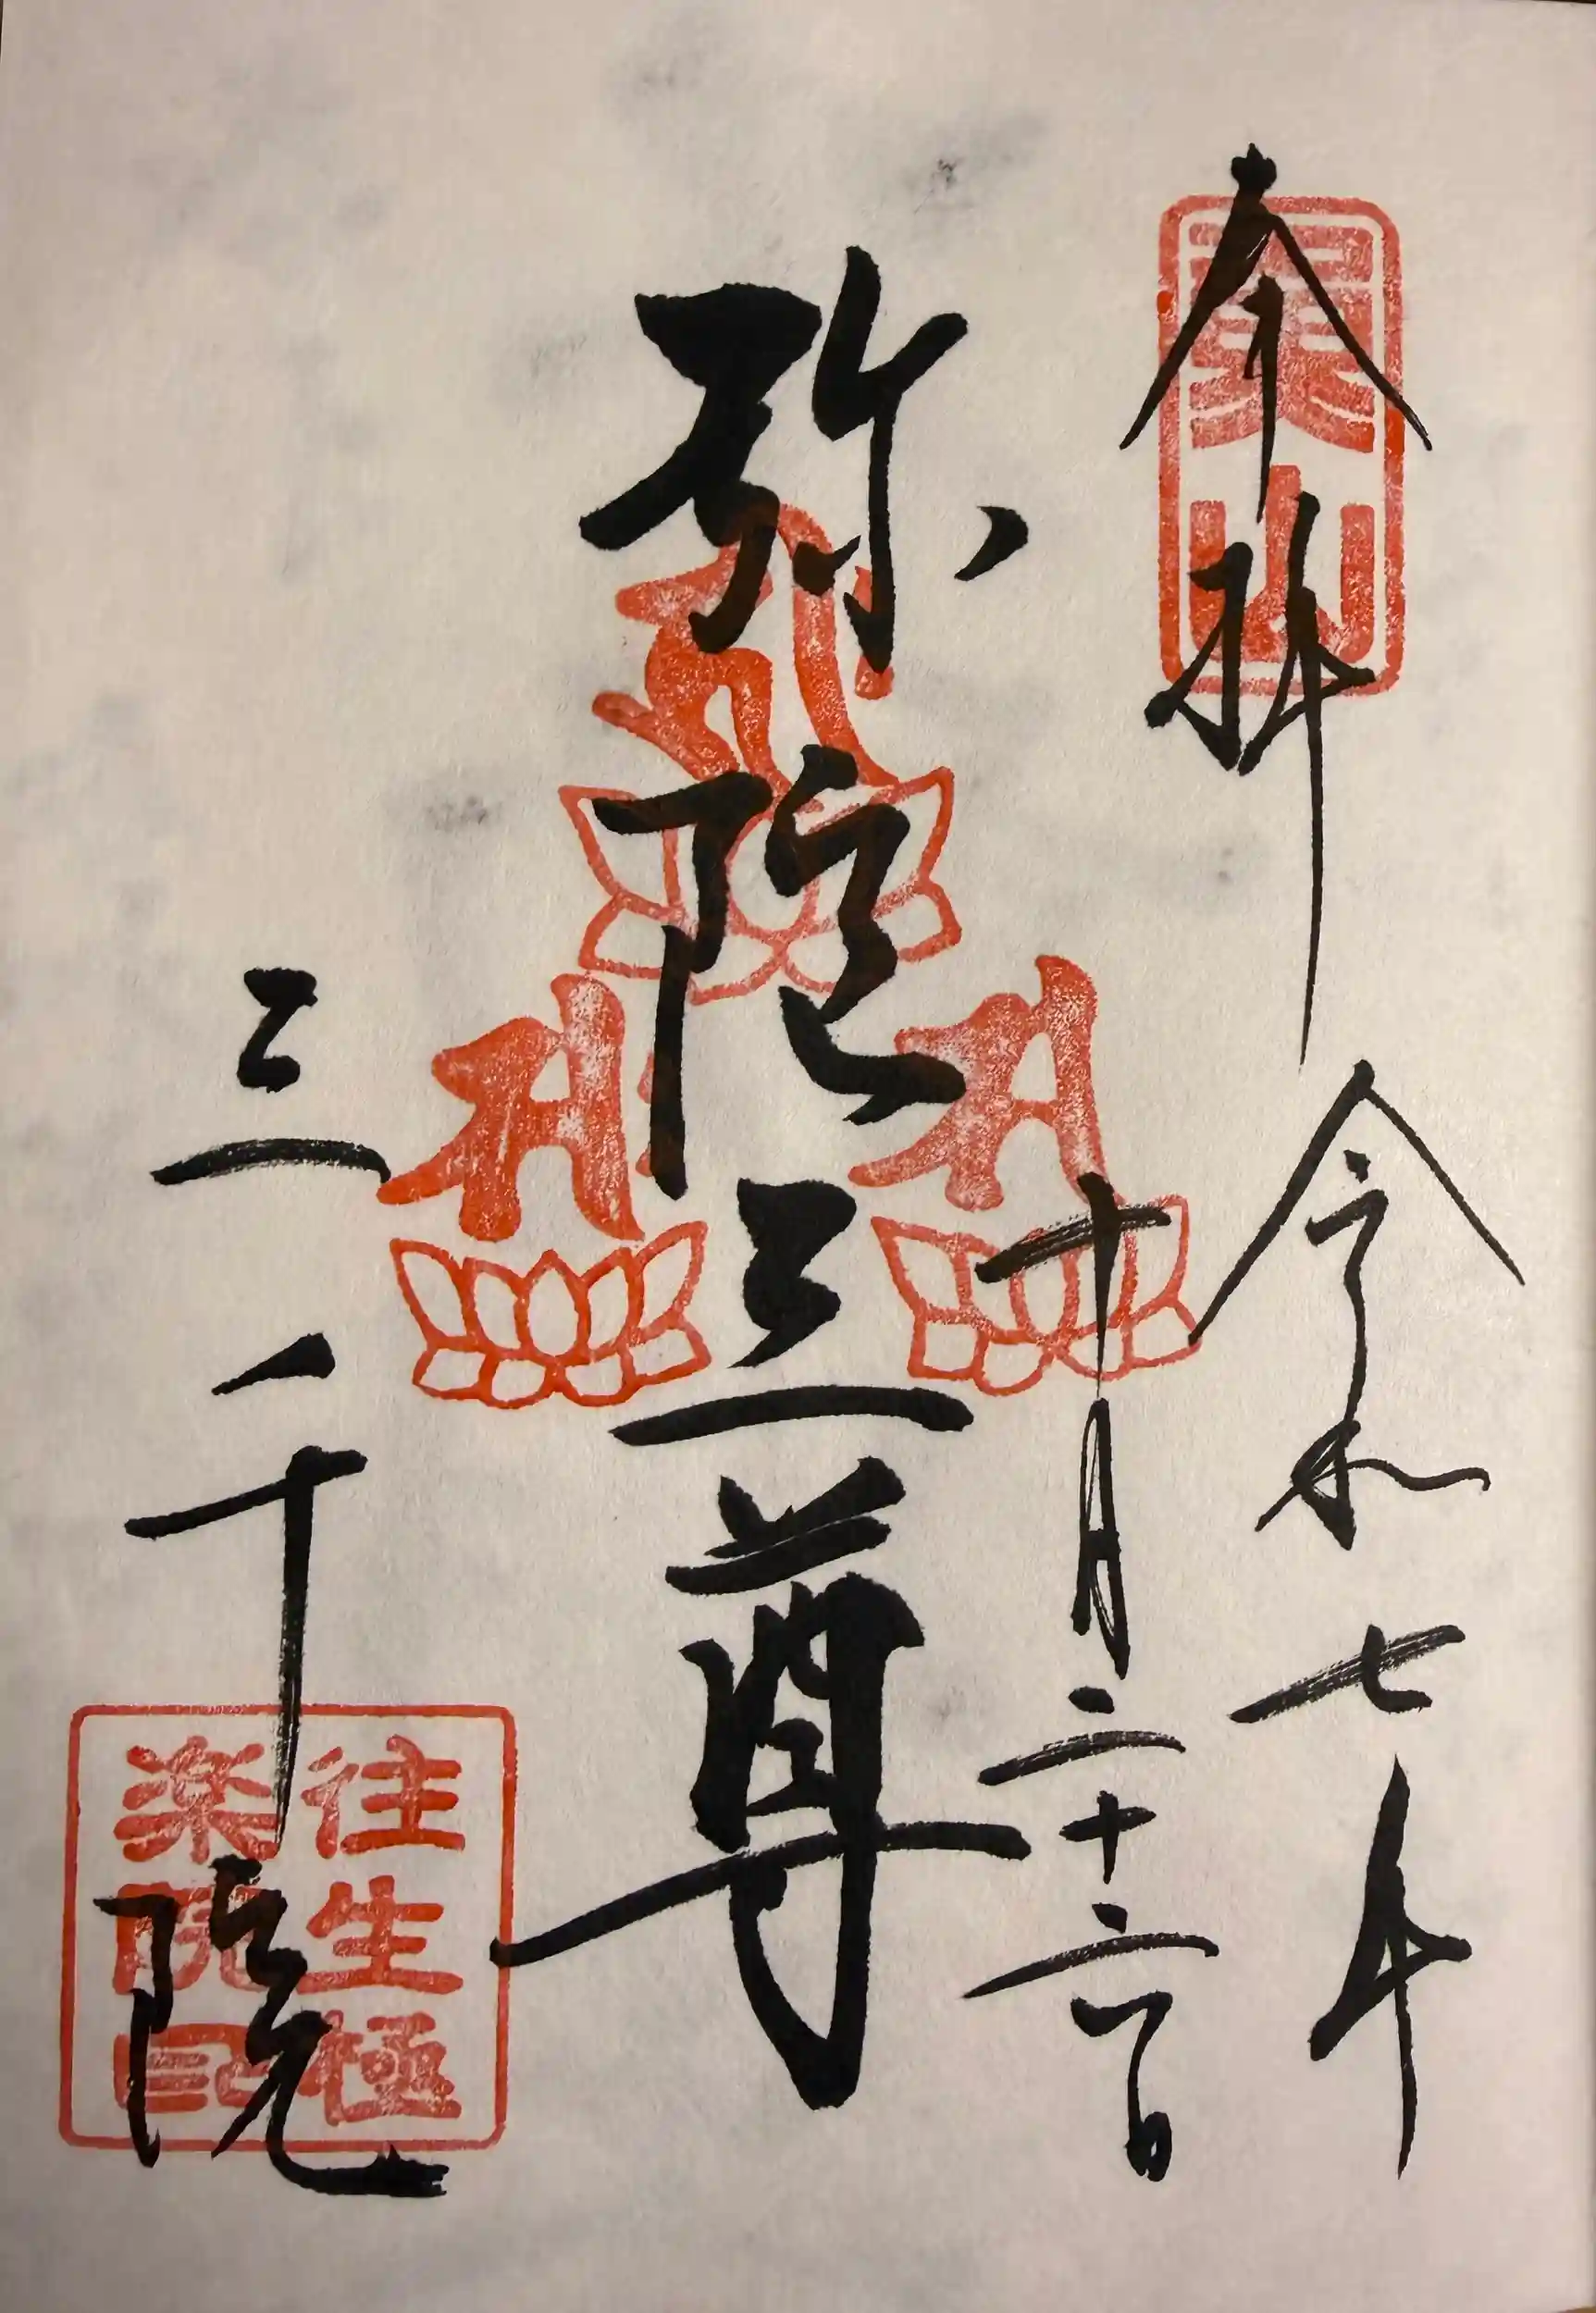 奉拝
魚山
令和七年
十月二十二日
弥陀三尊
三千院
往生極
楽院印